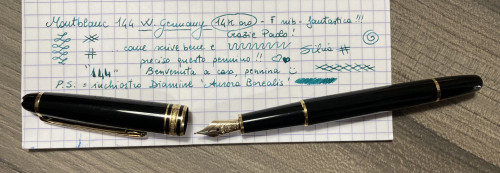 Montblanc 144 W. Germany 14K oro - F nib - fantastica!!!
Grazie Paolo!
come scrive bene e
preciso questo pennino!! Silvia
"144" Benvenuta a casa, pennina
P.S. = inchiostro Diamine 'Aurora Borealis'